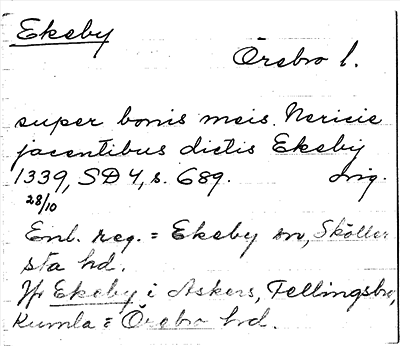 Ekeby
Örebro l.
super bonis meis Nericie
jacentibus dictis Ekeby
1339, SD 4, s. 689. orig.
28/10
Enl. reg. = Ekeby sn, Sköller
sta hd.
Jfr Ekeby i Askers, Fellingsbro,
Kumla = Örebro hrd.